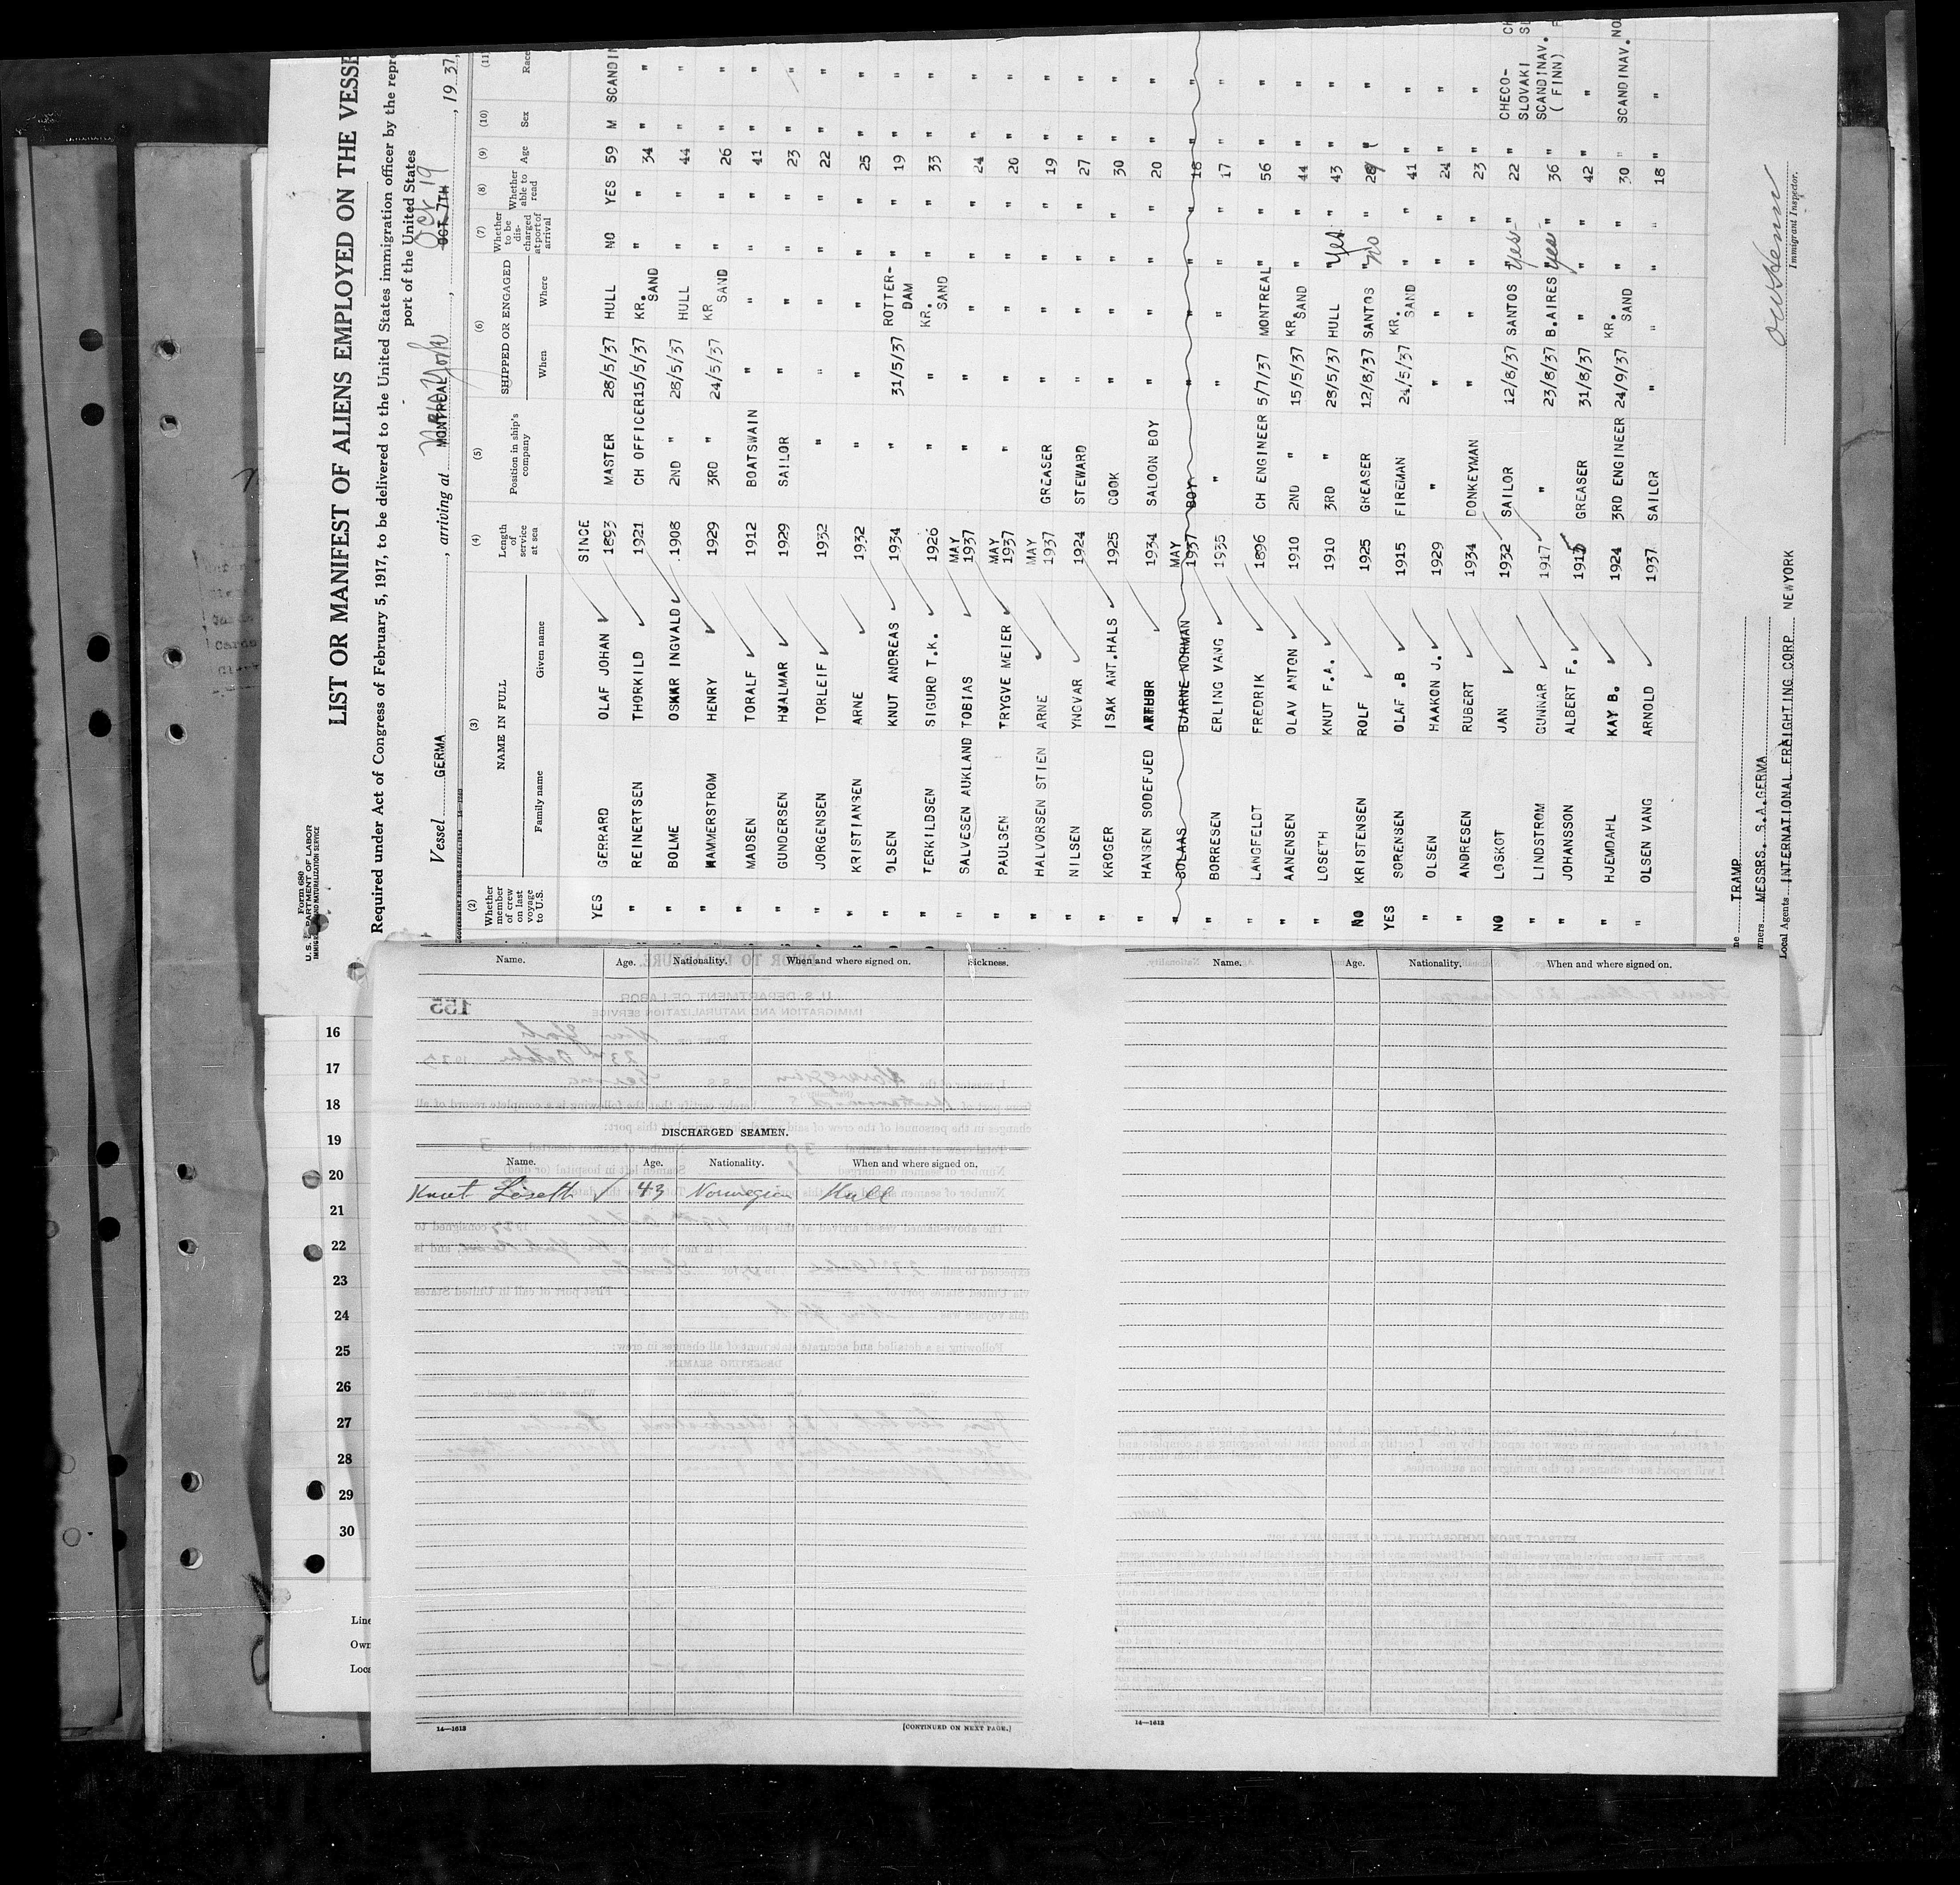 Form 680
U. S. DEPARTMENT OF LABOR
IMMIGRATION AND NATURALIZATION SERVICE
LIST OR MANIFEST OF ALIENS EMPLOYED ON THE VESSE
Required under Act of Congress of February 5, 1917, to be delivered to the United States immigration officer by the repre
port of the United States
Vessel GERMA, arriving at MONTREAL New York, OCT. 7TH Oct 19, 19 37,
(2) (3) (4) (5) (6) (7) (8) (9) (10) (11)
Whether member of crew on last voyage to U.S. NAME IN FULL Family name Given name Length of service at sea Position in ship's company SHIPPED OR ENGAGED When Where Whether to be discharged at port of arrival Whether able to read Age Sex Race
SINCE
YES GERRARD OLAF JOHAN 1893 MASTER 28/5/37 HULL NO YES 59 M SCANDIN
" REINERTSEN THORKILD 1921 CH OFFICER 15/5/37 KR. SAND " " 34 " "
" BOLME OSKAR INGVALD 1908 2ND " 28/5/37 HULL " " 44 " "
" HAMMERSTROM HENRY 1929 3RD " 24/5/37 KR SAND " " 26 " "
" MADSEN TORALF 1912 BOATSWAIN " " " " 41 " "
" GUNDERSEN HJALMAR 1929 SAILOR " " " " 23 " "
" JORGENSEN TORLEIF 1932 " " " " " 22 " "
" KRISTIANSEN ARNE 1932 " " " " " 25 " "
" OLSEN KNUT ANDREAS 1934 " 31/5/37 ROTTER-DAM " " 19 " "
" TERKILDSEN SIGURD T.K. 1926 " " KR. SAND " " 33 " "
" SALVESEN AUKLAND TOBIAS MAY 1937 " " " " " 24 " "
" PAULSEN TRYGVE MEIER MAY 1937 " " " " " 20 " "
" HALVORSEN STIEN ARNE MAY 1937 GREASER " " " " 19 " "
" NILSEN YNGVAR 1924 STEWARD " " " " 27 " "
" KROGER ISAK ANT.HALS 1925 COOK " " " " 30 " "
" HANSEN SODEFJED ARTHUR 1934 SALOON BOY " " " " 20 " "
" SOLAAS BJARNE NORMAN MAY 1937 BOY " " " " 18 " "
" BORRESEN ERLING VANG 1935 " " " " " 17 " "
" LANGFELDT FREDRIK 1896 CH ENGINEER 5/7/37 MONTREAL " " 56 " "
" AANENSEN OLAV ANTON 1910 2ND " 15/5/37 KR. SAND " " 44 " "
" LOSETH KNUT F.A. 1910 3RD " 28/5/37 HULL " Yes " 43 " "
NO KRISTENSEN ROLF 1925 GREASER 12/8/37 SANTOS " no " " "
YES SORENSEN OLAF .B 1915 FIREMAN 24/5/37 KR. SAND " " 41 " "
" OLSEN HAAKON J. 1929 " " " " " 24 " "
" ANDRESEN RUBERT 1934 DONKEYMAN " " " " 23 " "
NO LOSKOT JAN 1932 SAILOR 12/8/37 SANTOS " Yes " 22 " CHECO-SLOVAKI
" LINDSTROM GUNNAR 1917 " 23/8/37 B.AIRES " yes " 36 " SCANDINAV. (FINN)
" JOHANSSON ALBERT F. 1915 GREASER 31/8/37 " " " 42 " "
" HJEMDAHL KAY B. 1924 3RD ENGINEER 24/9/37 KR. SAND " " 30 " SCANDINAV.
" OLSEN VANG ARNOLD 1937 SAILOR " " " " 18 " "
TRAMP
wners MESSRS. S.A.GERMA
Local Agents INTERNATIONAL FREIGHTING CORP NEWYORK
Immigrant Inspector.
Name. Age. Nationality. When and where signed on. Sickness.
DISCHARGED SEAMEN.
Name. Age. Nationality. When and where signed on.
Knut Löseth 43 Norwegian Hull
14—1613
[CONTINUED ON NEXT PAGE.]
Name. Age. Nationality. When and where signed on.
14—1613
16
17
18
19
20
21
22
23
24
25
26
27
28
29
30
Line
Own
Loca